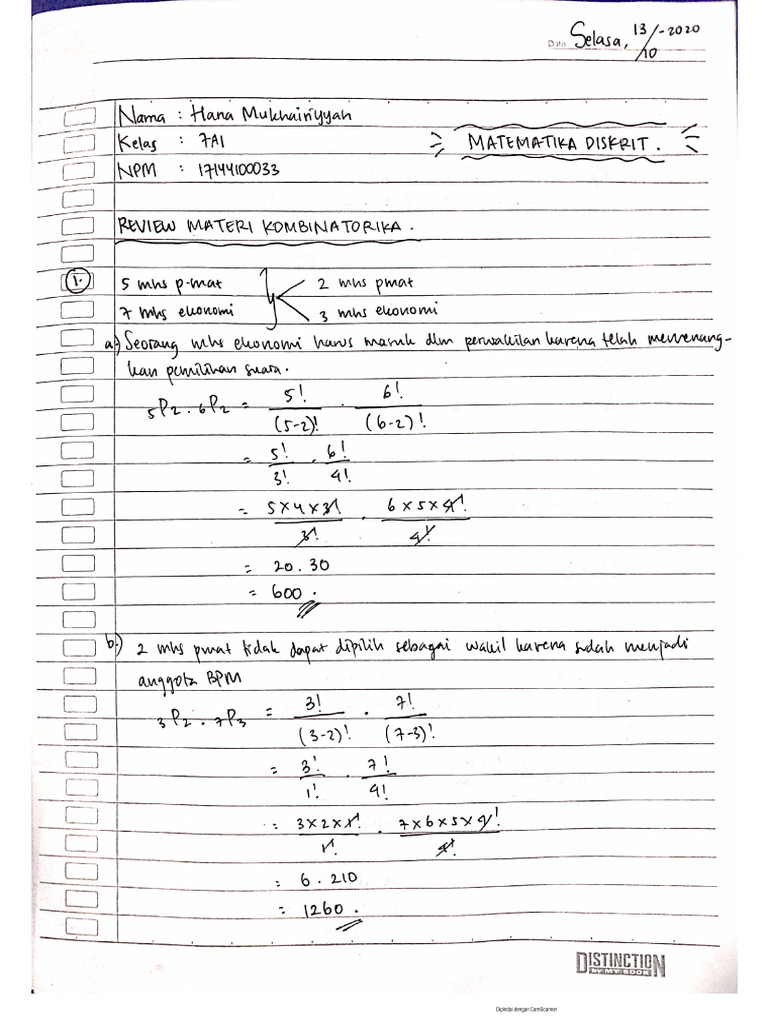 Date Selasa, 13/10-2020
Nama : Hana Mukhairiyyah
Kelas : 7A1
NPM : 17144100033
MATEMATIKA DISKRIT.
REVIEW MATERI KOMBINATORIKA.
1. 5 mhs p-mat 2 mhs pmat
7 mhs ekonomi 3 mhs ekonomi
a.) Seorang mhs ekonomi harus masuk dlm perwakilan karena telah memenang-
kan pemilihan suara.
5P2 . 6P2 = 5!/(5-2)! . 6!/(6-2)!
= 5!/3! . 6!/4!
= 5x4x3!/3! . 6x5x4!/4!
= 20 . 30
= 600.
b.) 2 mhs pmat tidak dapat dipilih sebagai wakil karena sudah menjadi
anggota BPM
3P2 . 7P3 = 3!/(3-2)! . 7!/(7-3)!
= 3!/1! . 7!/4!
= 3x2x1!/1! . 7x6x5x4!/4!
= 6 . 210
= 1260.
DISTINCTION
BY MY BOOK
Dipindai dengan CamScanner